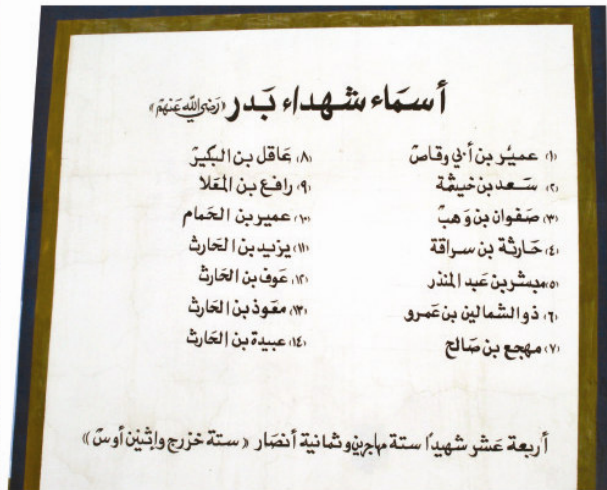 أسماء شهداء بدر «رضي الله عنهم»
(١) عمير بن أبي وقاص
(٢) سعد بن خيثمة
(٣) صفوان بن وهب
(٤) حارثة بن سراقة
(٥) مبشر بن عبد المنذر
(٦) ذو الشمالين بن عمرو
(٧) مهجع بن صالح
(٨) عاقل بن البكير
(٩) رافع بن المعلا
(١٠) عمير بن الحمام
(١١) يزيد بن الحارث
(١٢) عوف بن الحارث
(١٣) معوذ بن الحارث
(١٤) عبيدة بن الحارث
أربعة عشر شهيدا ستة مهاجرين وثمانية أنصار «ستة خزرج وإثنين أوس»